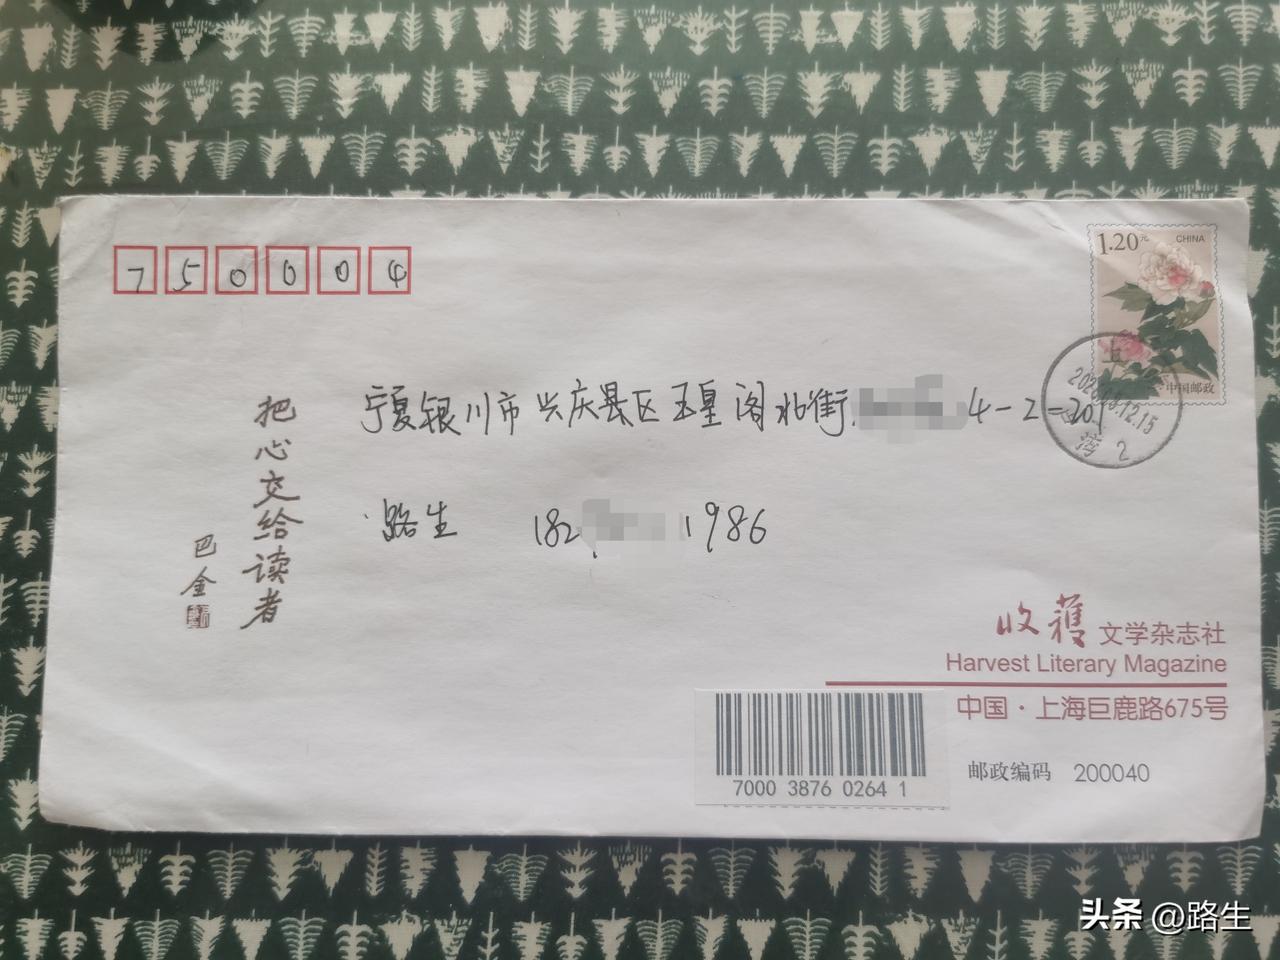 750004
1.20元 CHINA
中国邮政
上
海 2
宁夏银川市兴庆县区玉皇阁北街 4-2-201
路生 182 1986
把心交给读者
巴金
收获文学杂志社
Harvest Literary Magazine
中国·上海巨鹿路675号
7000 3876 0264 1
邮政编码 200040
头条 @路生